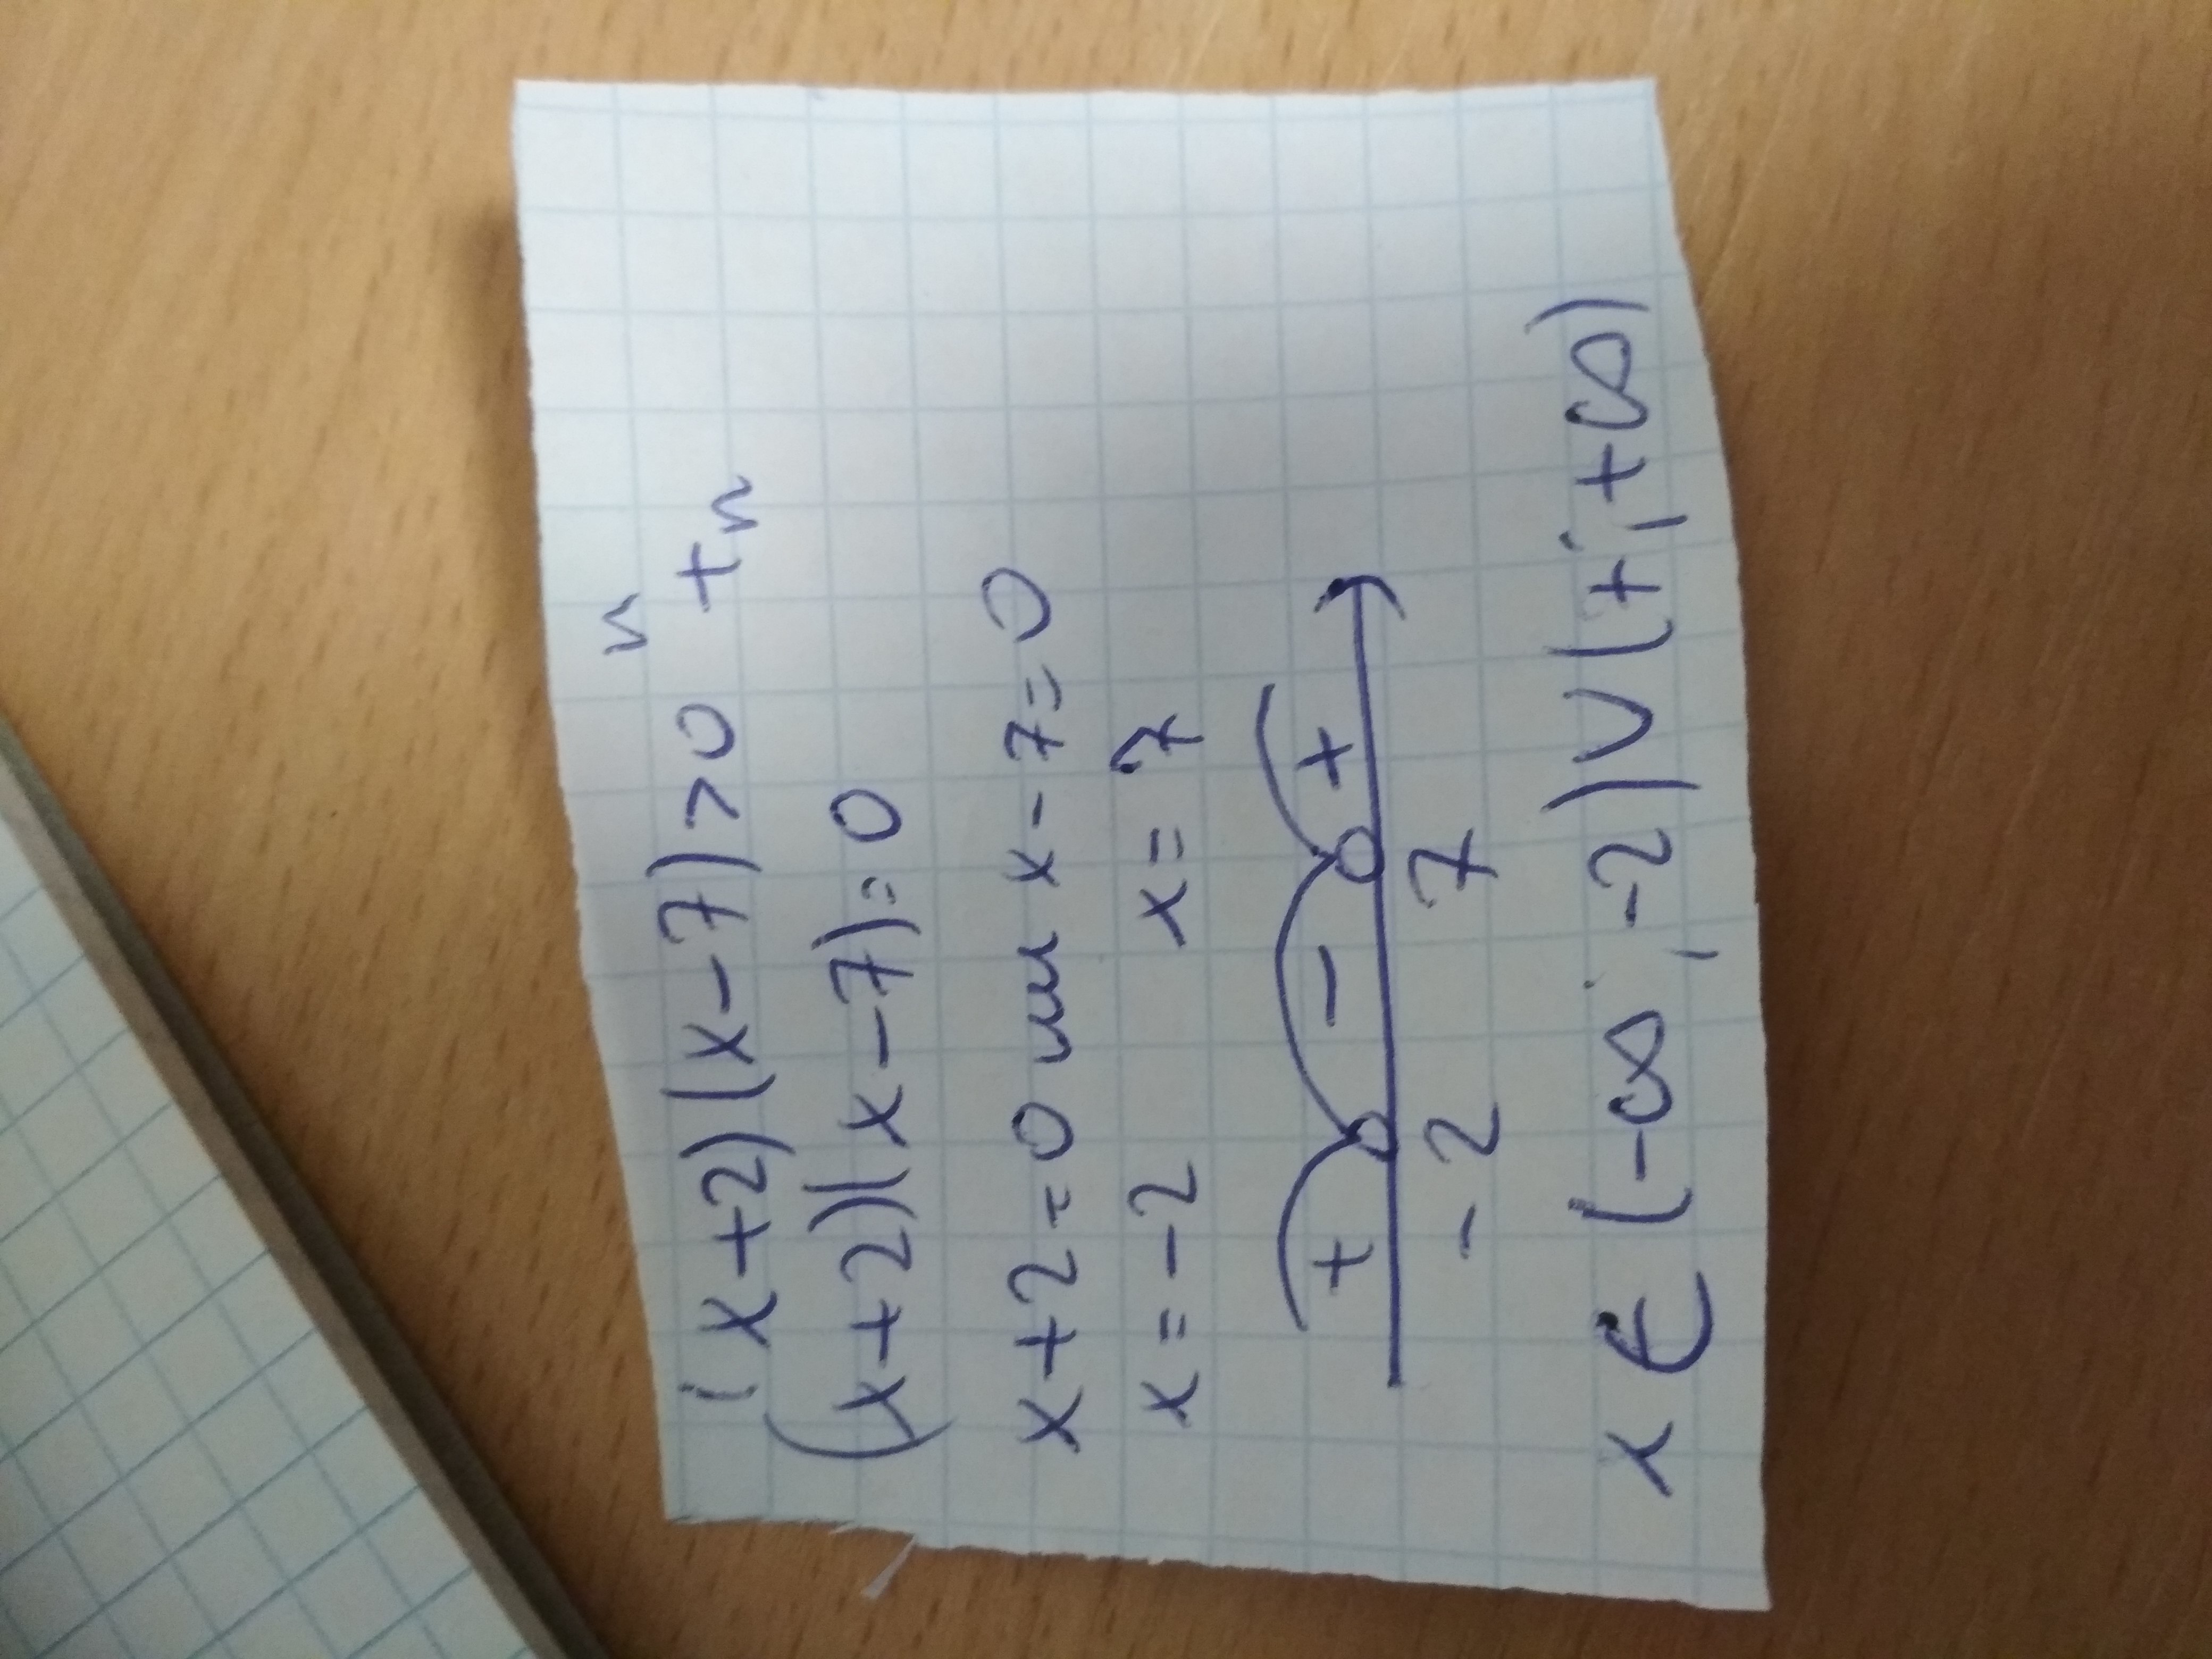 (x+2)(x-7)>0 "+"
(x+2)(x-7)=0
x+2=0 или x-7=0
x=-2 x=7
+ - +
-2 7
x ∈ (-∞; -2)∪(7; +∞)